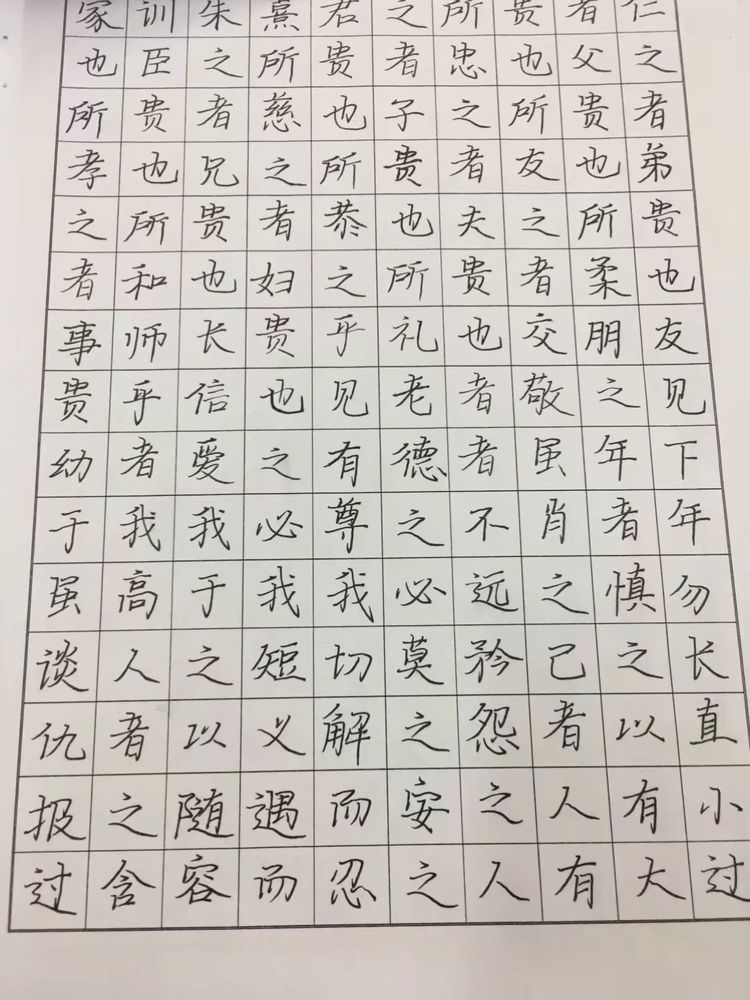 家训朱熹君之所贵者仁
也臣之所贵者忠也父之
所贵者慈也子之所贵者
孝也兄之所贵者友也弟
之所贵者恭也夫之所贵
者和也妇之所贵者柔也
事师长贵乎礼也交朋友
贵乎信也见老者敬之见
幼者爱之有德者虽年下
于我我必尊之不肖者年
虽高于我我必远之慎勿
谈人之短切莫矜己之长
仇者以义解之怨者以直
报之随遇而安之人有小
过含容而忍之人有大过